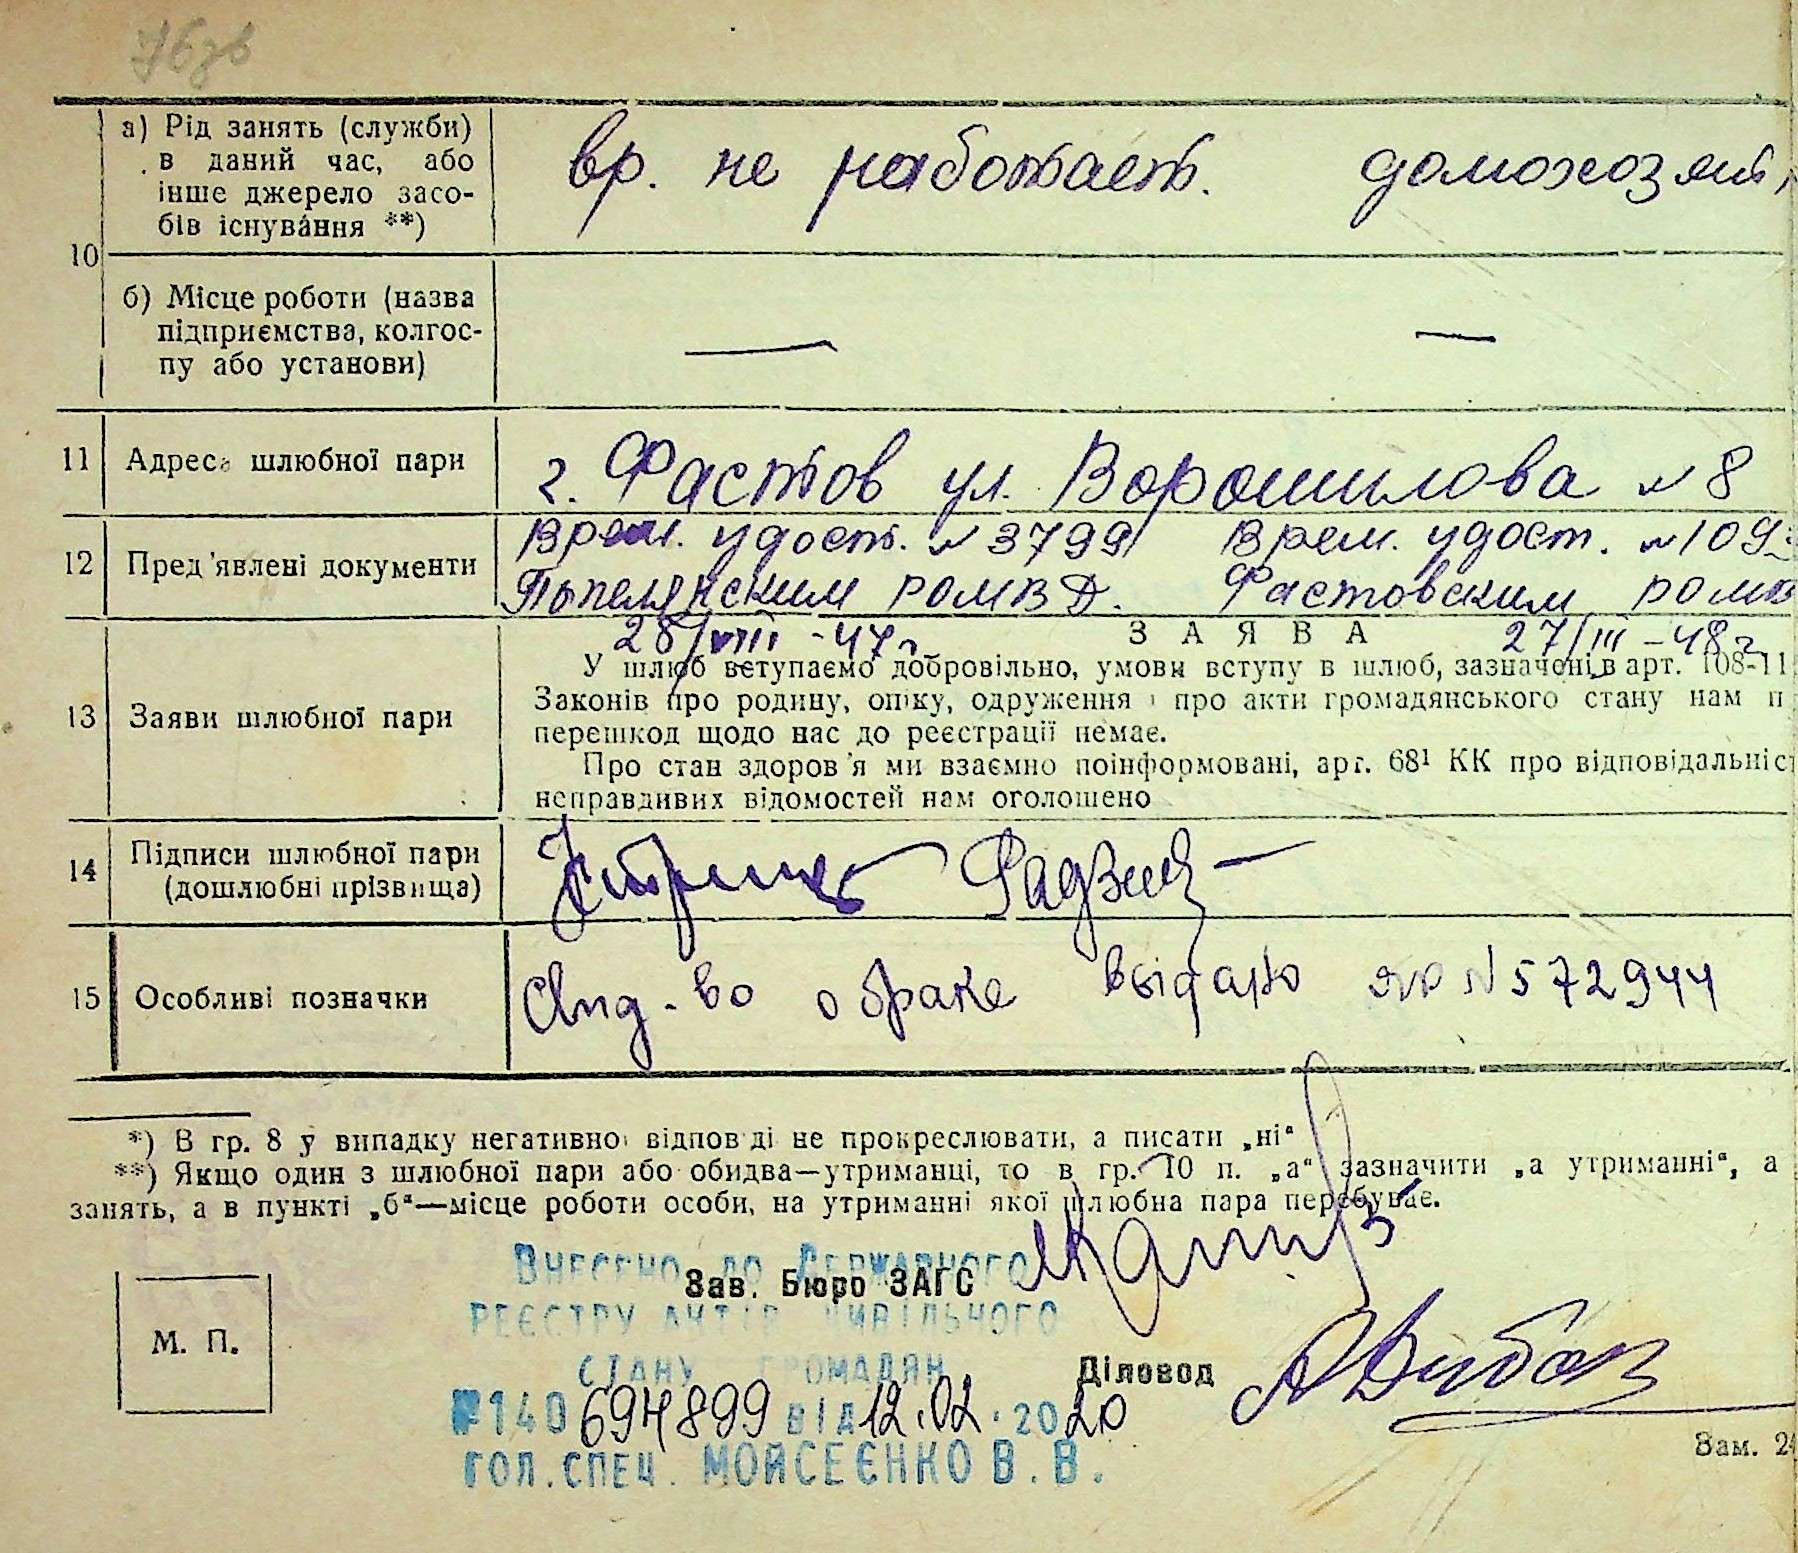 76зв
а) Рід занять (служби)
в даний час, або
інше джерело засо-
бів існування **)
вр. не работает. домохозяй
10
б) Місце роботи (назва
підприємства, колгос-
пу або установи)
— —
11 Адреса шлюбної пари г. Фастов ул. Ворошилова № 8
12 Пред'явлені документи
Врем. удост. № 3799 Врем. удост. № 109
Попелянским РОМВД. Фастовским РОМВ
28/VIII-47г. 27/III-48г.
ЗАЯВА
13 Заяви шлюбної пари
У шлюб вступаємо добровільно, умови вступу в шлюб, зазначені в арт. 108-11
Законів про родину, опіку, одруження і про акти громадянського стану нам п
перешкод щодо нас до реєстрації немає.
Про стан здоров'я ми взаємно поінформовані, арт. 68¹ КК про відповідальніс
неправдивих відомостей нам оголошено
14 Підписи шлюбної пари
(дошлюбні прізвища)
15 Особливі позначки
о браке выдано № 572944
*) В гр. 8 у випадку негативної відповіді не прокреслювати, а писати „ні“
**) Якщо один з шлюбної пари або обидва—утриманці, то в гр. 10 п. „а“ зазначити „а утриманні“, а
занять, а в пункті „б“—місце роботи особи, на утриманні якої шлюбна пара перебуває.
Внесено до Державного
Зав. Бюро ЗАГС
реєстру актів цивільного
М. П.
стану громадян
Діловод
№140 694899 від 12.02.2020
Зам. 24
гол.спец. Мойсеєнко В.В.